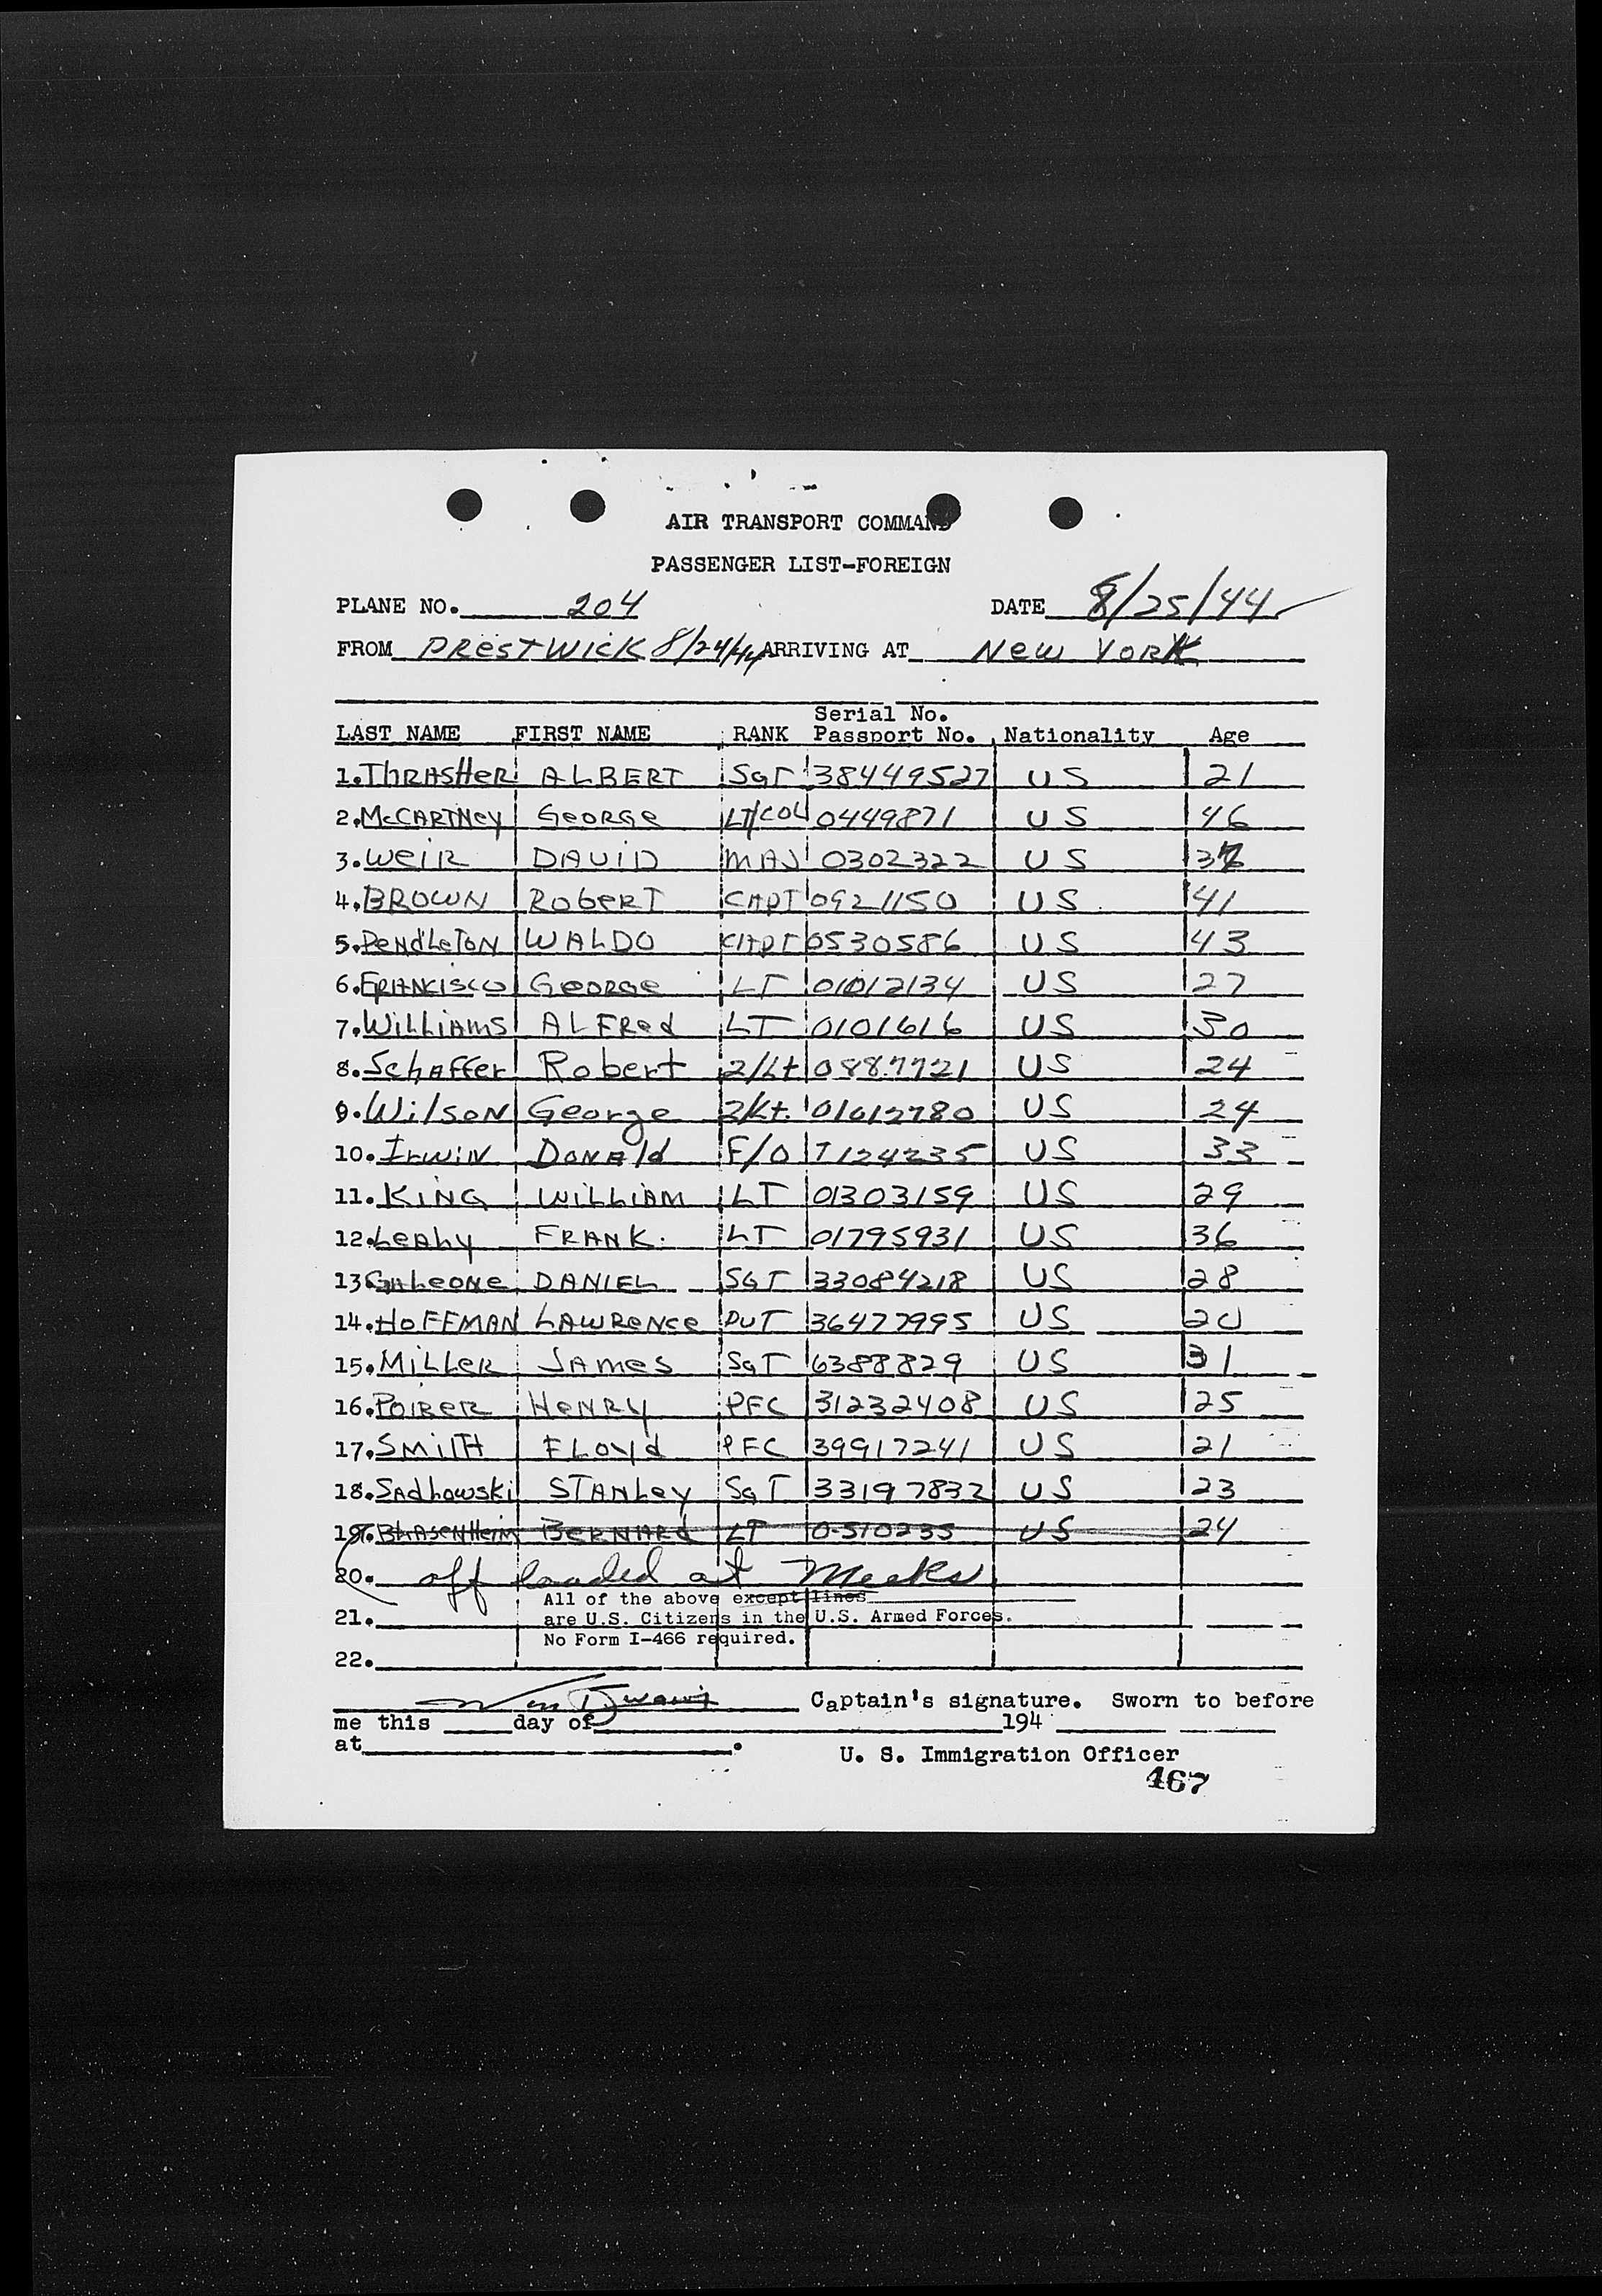 AIR TRANSPORT COMMAND
PASSENGER LIST-FOREIGN
PLANE NO. 204 DATE 8/25/44
FROM PRESTWICK 8/24/44 ARRIVING AT NEW YORK
Serial No.
LAST NAME FIRST NAME RANK Passport No. Nationality Age
1. THRASHER ALBERT SGT 38449527 US 21
2. McCARTNEY GEORGE LT/COL 0449871 US 46
3. WEIR DAVID MAJ 0302322 US
4. BROWN ROBERT CAPT 0921150 US 41
5. PENDLETON WALDO CAPT 0530586 US 43
6. FRANCISCO GEORGE LT 01012134 US 27
7. WILLIAMS ALFRED LT 0101616 US 30
8. Schaffer Robert 2/Lt 0887721 US 24
9. Wilson George 2/Lt. 01612780 US 24
10. Irwin Donald F/O T124235 US 33
11. KING WILLIAM LT 01303159 US 29
12. LEAHY FRANK. LT 01795931 US 36
13. GALEONE DANIEL SGT 33084218 US 28
14. HOFFMAN LAWRENCE PVT 36477995 US 20
15. MILLER JAMES SGT 6388829 US 31
16. POIRER HENRY PFC 31232408 US 25
17. SMITH FLOYD PFC 39917241 US 21
18. SADLOWSKI STANLEY SGT 33197832 US 23
19. BERNARD LT 0-510235 US 24
20. off loaded at Meeks
All of the above except lines
21. are U.S. Citizens in the U.S. Armed Forces.
No Form I-466 required.
22.
Captain's signature. Sworn to before
me this day of 194
at .
U. S. Immigration Officer
467